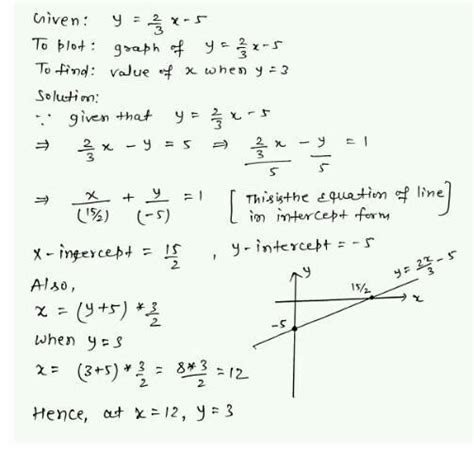 Given: y = 2/3 x - 5
To plot: graph of y = 2/3 x - 5
To find: value of x when y = 3
Solution:
∵ given that y = 2/3 x - 5
⇒ 2/3 x - y = 5 ⇒ (2/3 x)/5 - y/5 = 1
⇒ x/(15/2) + y/(-5) = 1 [This is the equation of line in intercept form]
x-intercept = 15/2 , y-intercept = -5
Also,
x = (y+5) * 3/2
when y = 3
x = (3+5) * 3/2 = 8*3/2 = 12
Hence, at x = 12, y = 3
y
y = 2x/3 - 5
15/2
x
-5